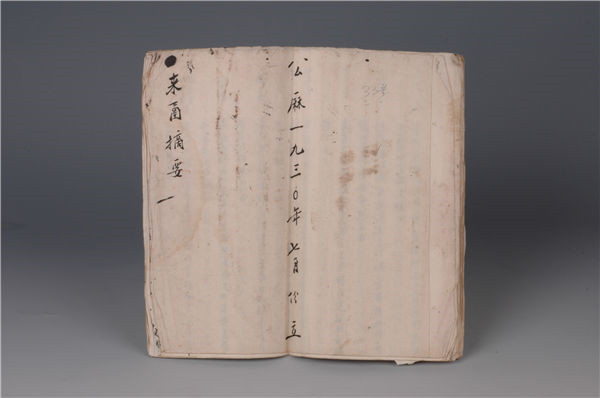 公厤一九三〇年七月份立
来函摘要一